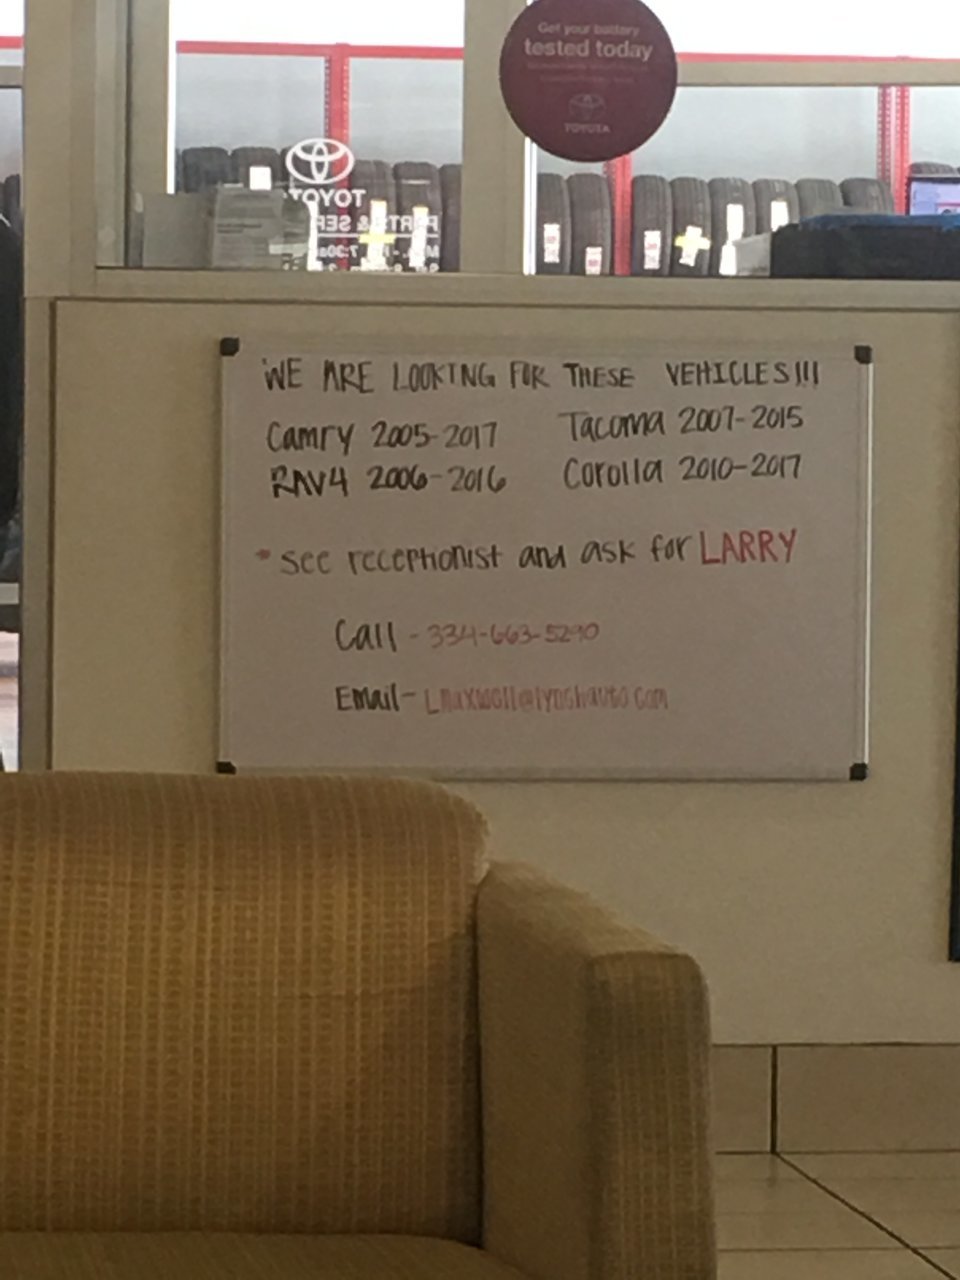 Get your battery
tested today
TOYOTA
TOYOT
PARTS & SER
WE ARE LOOKING FOR THESE VEHICLES!!!
Camry 2005-2017 Tacoma 2007-2015
RAV4 2006-2016 Corolla 2010-2017
* see receptionist and ask for LARRY
Call - 334-663-5290
Email- Lmaxwell@lynchauto.com